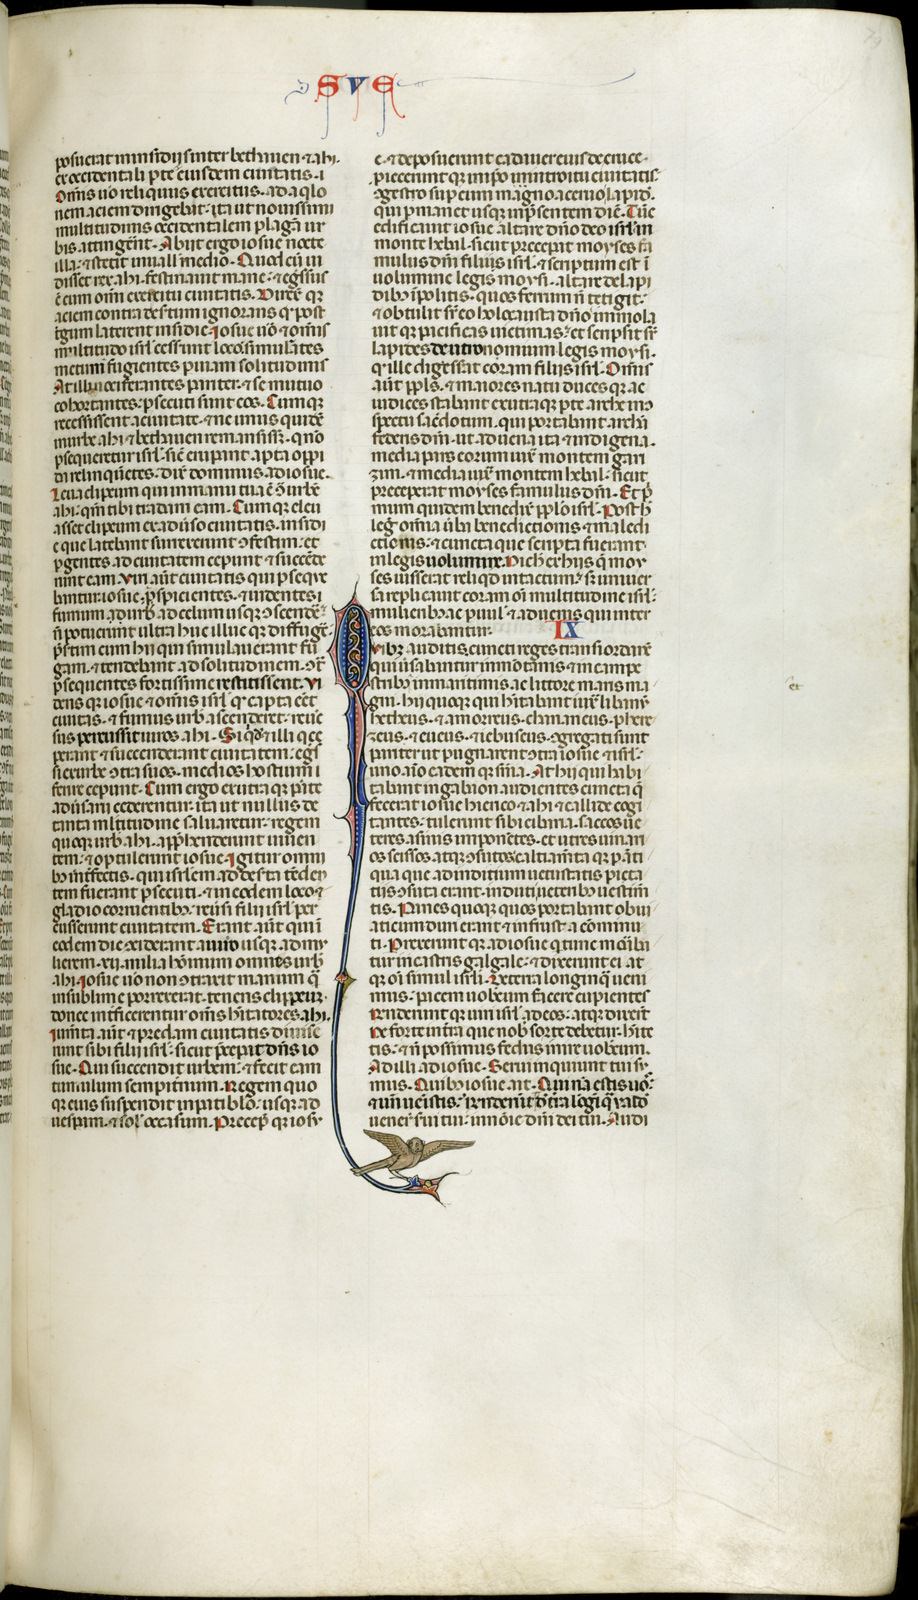 SVE
posuerat in insidijs inter bethauen ⁊ ahi·
ex occidentali p̱te eiusdem ciuitatis· i
Om̄is uō reliquus exercitus· ad aq̇lo
nem aciem dirigebat· ita ut nouissimi
multitudinis occidentalem plagā ur
bis attingerēt· Abijt ergo iosue nocte
illa· ⁊ stetit in uallis medio· Quod cū ui
disset rex ahi· festinauit mane· ⁊ eg̃ssus
ē cum om̄i exercitu ciuitatis· Direx̄ qꝫ
aciem contra desertum ignorans qꝫ post
t̃gum laterent insidie· Iosue uō ⁊ om̄is
multitudo isr̄l cesserunt loco· simulātes
metum· fugientes p̱ uiam solitudinis
At illi uociferantes pariter· ⁊ se mutuo
cohortantes· p̱secuti sunt eos· Cumqꝫ
recessissent a ciuitate· ⁊ ne unus quidē
in urbe ahi ⁊ bethauen remansiss̄· qn̄o
p̱sequeretur isr̄l· sic̄ erup̄ant ap̱ta oppi
da relinquētes· dix̄ dominus ad iosue·
Leua clipeum qui in manu tua ē ꝯ̄ urbē
ahi· qm̄ tibi tradam eam· Cumqꝫ eleu
asset clipeum ex adu̇so ciuitatis· insidi
e que latebant surrexerunt ꝯfestim· et
p̱gentes ad ciuitatem ceperunt ⁊ succēde
runt eam· Viri aūt ciuitatis qui p̱seqve
bantur iosue· respicientes· ⁊ uidentes
fumum urbis ad celum usqꝫ ꝯscendē·
n̄ potuerunt ultra huc illucqꝫ diffugē·
p̱sertim cum hij qui simulauerant fu
gam· ⁊ tendebant ad solitudinem· ꝯt̄
p̱sequentes fortissime restitissent· Vi
densqꝫ iosue ⁊ om̄is isr̄l qꝫ capta eēt
ciuitas· ⁊ fumus urb̄ ascenderet· reũe
sus percussit uiros ahi· Siq̇dē ⁊ illi q̇ ce
perant ⁊ succenderant ciuitatem· eg̃s
si ex urbe ꝯtra suos· medios hostium
ferire ceperunt· Cum ergo ex utraqꝫ p̱te
adũsarij cederentur· ita ut nullus de
tanta ml̄titudine saluaretur· regem
quoqꝫ urb̄ ahi· app̱hendenunt uiuen
tem· ⁊ optulerunt iosue· Igitur omni
bꝫ int̄fectis· qui isr̄lem ad deserta tēden
tem fuerant p̱secuti· ⁊ in eodem loco
gladio corruentibꝫ· reũsi filij isr̄l per
cusserunt ciuitatem· Erant aūt qui ī
eodem die ceciderant a uiro usqꝫ ad mu
lierem· xij· milia hoīnum omnes urb̄
ahi· Iosue uō non ꝯtraxit manum q̄
in sublime porrexerat· tenens clippeum·
donec int̄ficerentur om̄s hītatores ahi·
Iumēta aūt ⁊ predam ciuitatis diuise
runt sibi filij isr̄l· sicut p̄cepit dn̄s io
sue· Qui succendit urbem· ⁊ fecit eam
tumulum sempiternum· Regem quo
qꝫ eius suspendit in patibulo· usqꝫ ad
uesp̱am· ⁊ sol̄ occasum· Precep̄ qꝫ iosv
e· ⁊ deposuerunt cadauer eius de cruce·
p̱ieceruntqꝫ in ip̄o introitu ciuitatis·
ꝯgesto sup̱ eum magno aceruo lapidū·
qui p̱manet usqꝫ in p̱sentem diē· Tūc
edificauit iosue altare dn̄o deo isr̄l in
monte hebal· sicut precepat moyses fa
mulus dn̄i filijs isr̄l· ⁊ scriptum est ī
uolumine legis moysi· altare de lapi
dibꝫ īpolitis· quos ferrum n̄ tetigit·
⁊ obtulit sr̄ eo holocausta dn̄o immola
uitqꝫ pacificas uictimas· et scripsit sr̄
lapides deutronomium legis moysi·
q̇ ille digesserat coram filijs isr̄l· Om̄is
aūt ppl̄s· ⁊ maiores natu duces qꝫ ac
iudices stabant ex utraqꝫ p̱te arche in ꝯ
spectu sac̄dotum· qui portabant archā
federis dn̄i· ut aduena ita ⁊ indigena·
media pars eorum iux̄ montem gari
zim· ⁊ media iux̄ montem hebal· sicut
preceperat moyses famulus dn̄i· Et p̱
mum quidem benedix̄ pp̄lo isr̄l· Post h̄
leḡ om̄ia ūba benedictionis ⁊ maledi
ctionis· ⁊ cuncta que scripta fuerant
in legis uolumine· Nichil ex hijs q̄ moy
ses iusserat reliq̇d intactum· sꝫ uniuer
sa replicauit coram om̄i multitudine isr̄l·
mulieribꝫ ac p̱uul̄· ⁊ aduenis qui inter
eos morabantur·
IX
Vibꝫ auditis· cuncti reges trans iordanē
qui ūsabantur in mōtanis ⁊ in campe
stribꝫ in maritimis ac littore maris ma
gni· hij quoqꝫ qui hītabant iux̄ libanū
hetheus· ⁊ amorreus· chananeus· pherē
zeus· ⁊ eueus· ⁊ iebuseus· ꝯgregati sunt
pariter ut pugnarent ꝯtra iosue ⁊ isr̄l·
uno aīo eademqꝫ sn̄ia· At hij qui habi
tabant in gabaon audientes cuncta q̄
fecerat iosue hierico ⁊ ahi ⁊ callide cogi
tantes· tulerunt sibi cibaria· saccos ue
teres asinis imponētes· et utres uinari
os scissos atqꝫ ꝯsutos· calciam̄ta qꝫ p̱ āti
qua que ad indicium uetustatis picta
tijs ꝯsuta erant· induti ueteribꝫ uestim̄
tis· Panes quoqꝫ quos portabant ob ui
aticum duri erant ⁊ in frusta cōminu
ti· Perrexerunt qꝫ ad iosue q̇ tunc moraba
tur in castris galgale· ⁊ dixerunt ei at
qꝫ om̄i simul isr̄li· De terra longinq̄ ueni
mus· pacem uobcum facere cupientes
Rn̄deruntqꝫ uiri isr̄l· ad eos· atqꝫ dixerūt
Ne forte in t̃ra que nob̄ sorte debetur hīte
tis· ⁊ n̄ possimus fedus inire uobcum·
Ad illi ad iosue· Serui inquiunt tui su
mus· Quibꝫ iosue ait· Quinā estis uos·
⁊ un̄ uenistis· Rn̄derūt· De t̃ra longiq̄ ualde
uener̄ sui tui· in noīe dn̄i dei tui· Audi